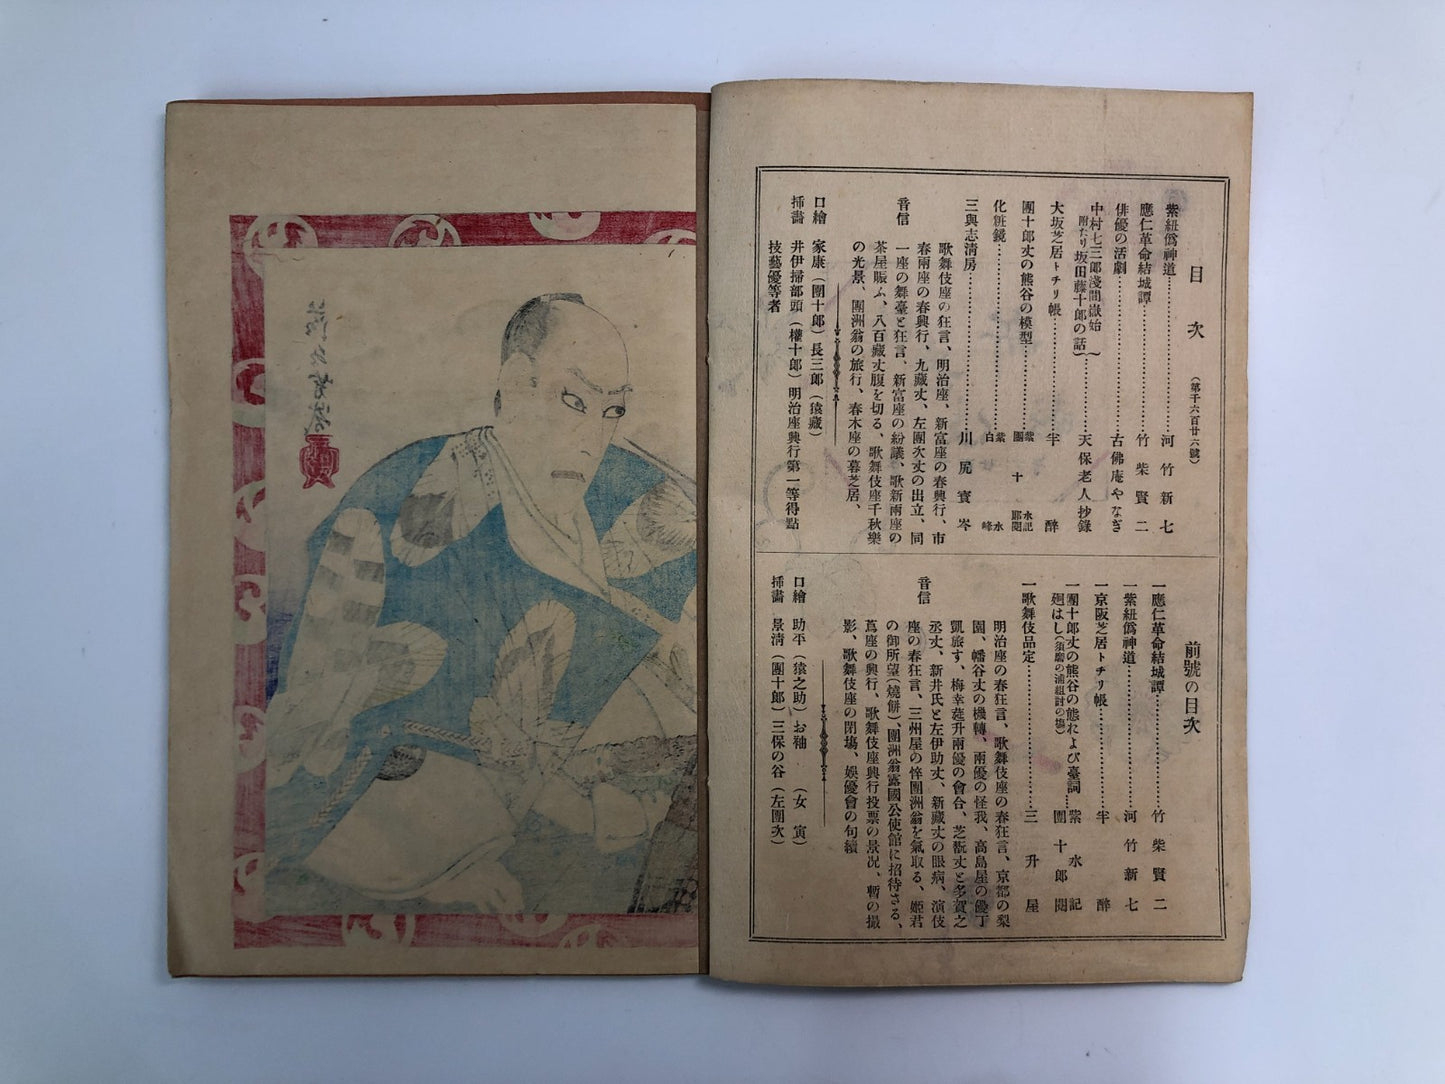 目次
(第千六百廿六號)
紫紐僞神道………河竹新七
應仁革命結城譚………竹柴賢二
俳優の活劇………古佛庵やなぎ
中村七三郎淺間嶽始
附たり坂田藤十郎の話………天保老人抄錄
大坂芝居トチリ帳………半醉
團十郎丈の熊谷の模型………紫水記 團十郎閱
化粧鏡………紫水 白峰
三與志淸房………川尻寳岑
音信
歌舞伎座の狂言、明治座、新富座の春興行、市
春兩座の春興行、九藏丈、左團次丈の出立、同
一座の舞臺と狂言、新富座の紛議、歌新兩座の
茶屋賑ふ、八百藏丈腹を切る、歌舞伎座千秋樂
の光景、團洲翁の旅行、春木座の暮芝居、
口繪 家康(團十郎)長三郎(猿藏)
挿畵 井伊掃部頭(權十郎)明治座興行第一等得點
技藝優等者
前號の目次
一應仁革命結城譚………竹柴賢二
一紫紐僞神道………河竹新七
一京阪芝居トチリ帳………半醉
一團十郎丈の熊谷の態および臺詞…紫水記
廻はし(須磨の浦組討の塲) 團十郎閱
一歌舞伎品定………三升屋
音信
明治座の春狂言、歌舞伎座の春狂言、京都の梨
園、幡谷丈の機轉、兩優の怪我、高島屋の優丁
凱旅す、梅幸莚升兩優の會合、芝翫丈と多賀之
丞丈、新井氏と左伊助丈、新藏丈の眼病、演伎
座の春狂言、三州屋の悴團洲翁を氣取る、姫君
の御所望(燒餅)、團洲翁露國公使館に招待さる、
蔦座の興行、歌舞伎座興行投票の景况、暫の撮
影、歌舞伎座の閉塲、娛優會の句續
口繪 助平(猿之助)お袖(女寅)
挿畵 景淸(團十郎)三保の谷(左團次)